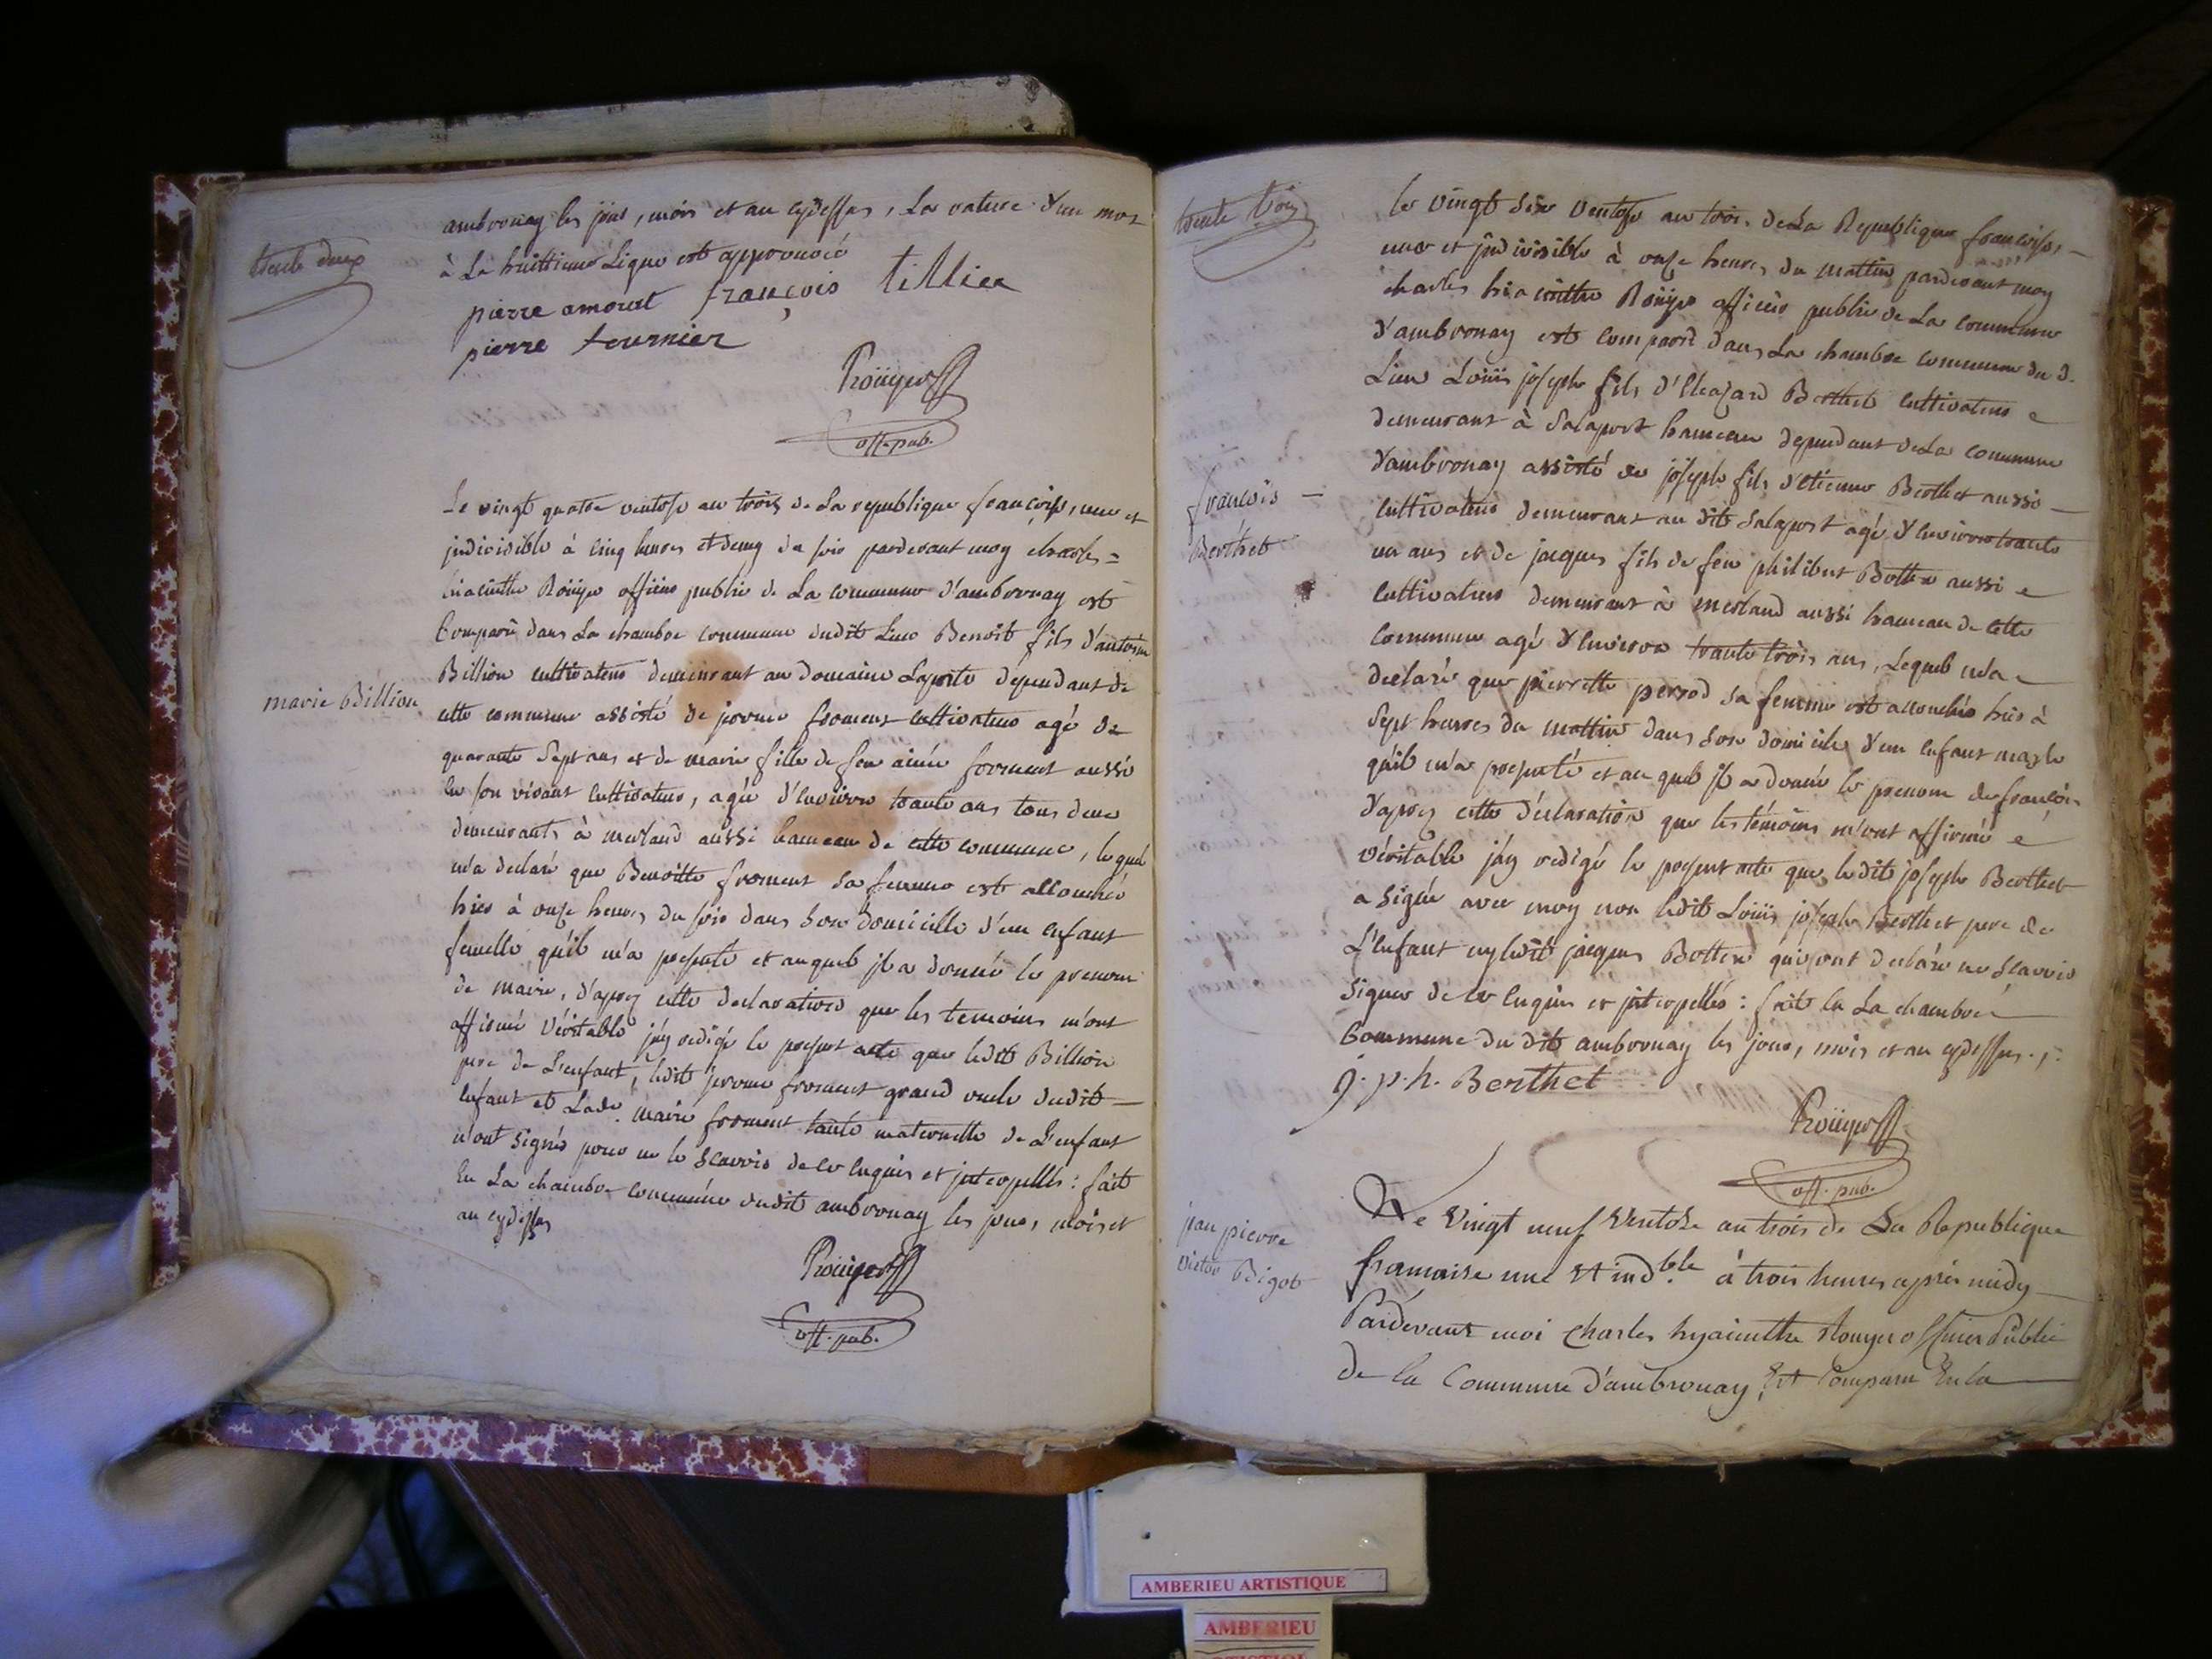 trente deux
ambronay les jour, mois et an cydessus, la rature d'un mot
à la huittieme Ligne est approuvée
pierre amouret françois tillier
pierre tournier
Roüyer
off. pub.
Le vingt quatre ventose an trois de la republique françoise, une et
jndivisible à cinq heures et demy du soir pardevant moy charles =
hiacinthe Roüyer officier public de La commune d'ambronay est
Comparu dans La chambre commune dudit Lieu Benoit fils d'antoine
marie Billion
Billion cultivateur demeurant au domaine Laporte dependant de
cette commune assisté de jerome froment cultivateur agé de
quarante Sept ans et de marie fille de feu aimé froment aussi
en son vivant Cultivateur, agée d'environ trante ans tous deux
demeurants à merland aussi hameau de cette commune, lequel
m'a declaré que Benoitte froment sa femme est accouchée
hier à onze heures du soir dans son domicille d'un enfant
femelle qu'il m'a presenté et auquel jl a donné le prenom
de marie, d'aprez cette declaration que les temoins m'ont
affirmé Véritable j'ay redigé le present acte que ledit Billion
pere de L'enfant, ledit jerome froment grand oncle dudit
enfant et Lade. marie froment tante maternelle de L'enfant
n'ont signés pour ne le sçavoir de ce enquis et jnterpellés : fait
En La chambre commune dudit ambronay les jour, mois et
an cydessus
Roüyer
off. pub.
trente trois
le vingt six ventose an trois de La Republique françoise,
une et jndivisible à onze heures du mattin pardevant moy
charles hiacinthe Roüyer officier public de La commune
d'ambronay est comparu dans La chambre commune du d.
Lieu Loüis joseph fils d'Eleazard Berthet cultivateur
demeurant à Salaport hameau dependant de La commune
d'ambronay assisté de joseph fils d'etienne Berthet aussi
françois
Berthet
cultivateur demeurant au dit Salaport agé d'environ trante
un ans et de jacques fils de feu philibert Bottex aussi
cultivateur demeurant à merland aussi hameau de cette
commune agé d'environ trante trois ans, Lequel m'a
declaré que pierrette perrod sa femme est accouchée hier à
Sept heures du mattin dans son domicile d'un enfant masle
qu'il m'a presenté et auquel jl a donné le prenom de françois
d'aprez cette déclaration que les témoins m'ont affirmé
véritable j'ay redigé le present acte que ledit joseph Berthet
a signé avec moy non ledit Loüis joseph Berthet pere de
L'enfant ny ledit jacques Bottex qui ont declaré ne sçavoir
signer de ce enquis et jnterpellés : fait en La chambre
Commune du dit ambronay les jour, mois et an cydessus.
j. p. h. Berthet
Roüyer
off. pub.
jean pierre
victor Bigot
Le Vingt neuf Ventose an trois de La Republique
francaise une Et ind.ble à trois heures après midy
Pardevant moi Charles hyacinthe Rouyer officier Public
de la Commune d'ambronay, Est Comparu En la
AMBERIEU ARTISTIQUE
AMBERIEU
ARTISTIQUE